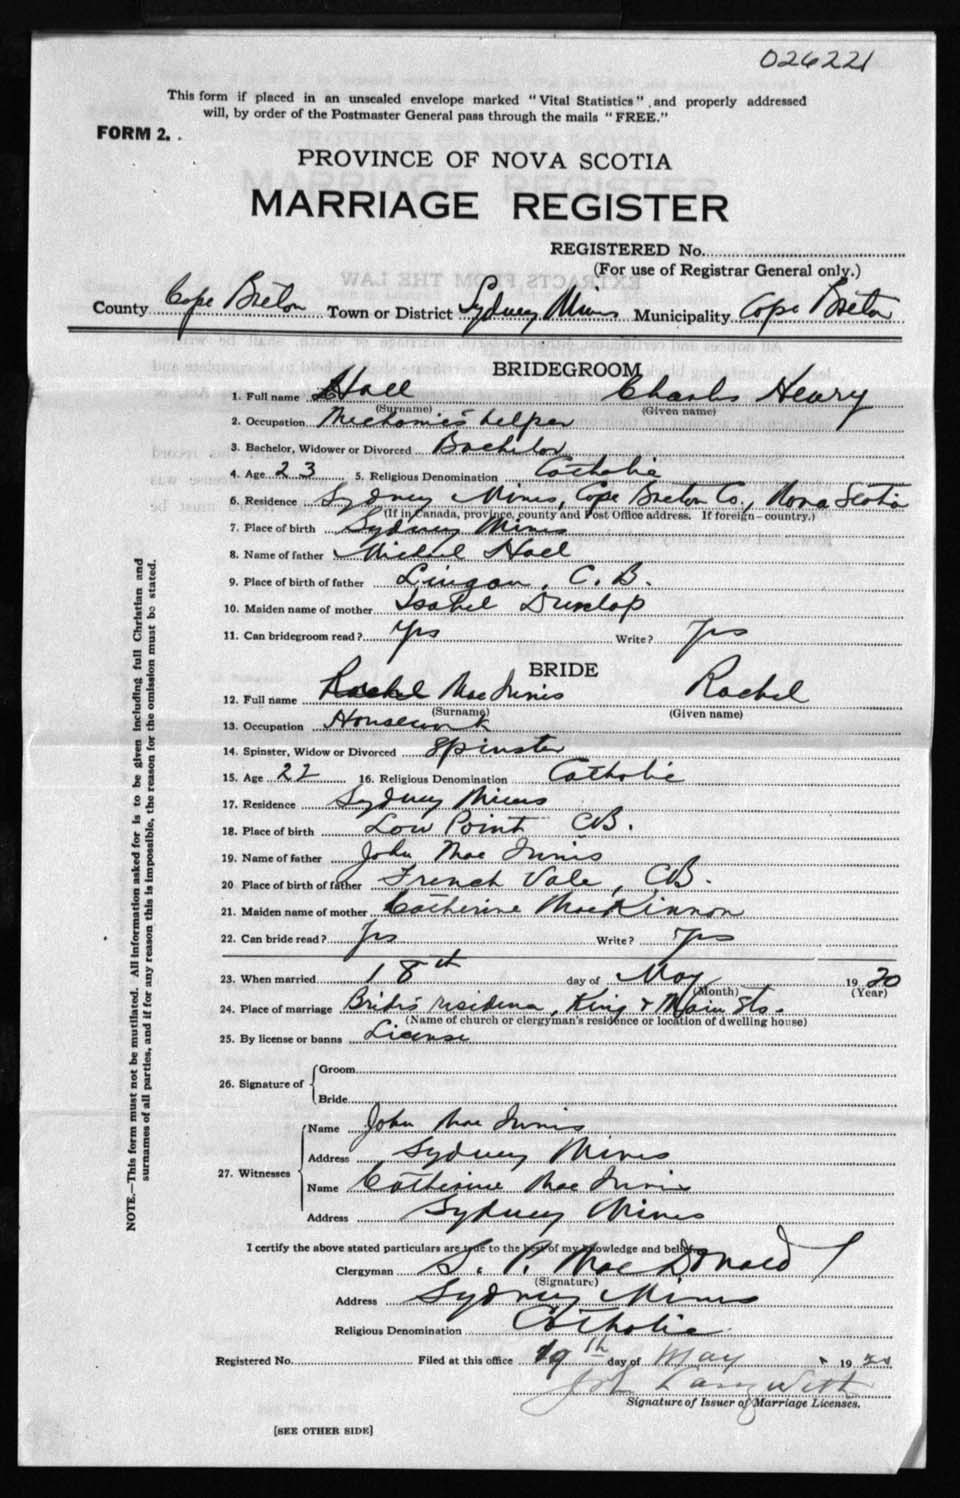 026221
This form if placed in an unsealed envelope marked "Vital Statistics" and properly addressed
will, by order of the Postmaster General pass through the mails "FREE."
FORM 2.
PROVINCE OF NOVA SCOTIA
MARRIAGE REGISTER
REGISTERED No.
(For use of Registrar General only.)
EXTRACTS FROM THE LAW
County Cape Breton Town or District Sydney Mines Municipality Cape Breton
BRIDEGROOM
1. Full name Hall Charles Henry
(Surname) (Given name)
2. Occupation Mechanic's helper
3. Bachelor, Widower or Divorced Bachelor
4. Age 23 5. Religious Denomination Catholic
6. Residence Sydney Mines, Cape Breton Co., Nova Scotia
(If in Canada, province, county and Post Office address. If foreign—country.)
7. Place of birth Sydney Mines
8. Name of father Hall
9. Place of birth of father Lingan, C. B.
10. Maiden name of mother Isabel Dunlop
11. Can bridegroom read? Yes Write? Yes
BRIDE
12. Full name Rachel Mac Innis Rachel
(Surname) (Given name)
13. Occupation Housework
14. Spinster, Widow or Divorced Spinster
15. Age 22 16. Religious Denomination Catholic
17. Residence Sydney Mines
18. Place of birth Low Point CB.
19. Name of father John Mac Innis
20 Place of birth of father French Vale, CB.
21. Maiden name of mother Catherine MacKinnon
22. Can bride read? Yes Write? Yes
23. When married 18th day of May 1920
(Month) (Year)
24. Place of marriage Bride's residence, King & Main Sts.
(Name of church or clergyman's residence or location of dwelling house)
25. By license or banns License
26. Signature of Groom
Bride
27. Witnesses
Name John Mac Innis
Address Sydney Mines
Name Catherine Mac Innis
Address Sydney Mines
I certify the above stated particulars are true to the best of my knowledge and belief.
Clergyman S. P. MacDonald
(Signature)
Address Sydney Mines
Religious Denomination Catholic
Registered No. Filed at this office 19th day of May 1920
Signature of Issuer of Marriage Licenses.
[SEE OTHER SIDE]
NOTE.—This form must not be mutilated. All information asked for is to be given including full Christian and
surnames of all parties, and if for any reason this is impossible, the reason for the omission must be stated.